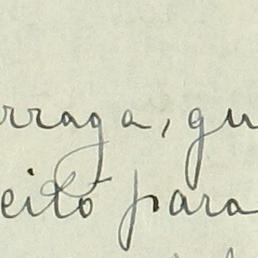 rraga, qu
eito para